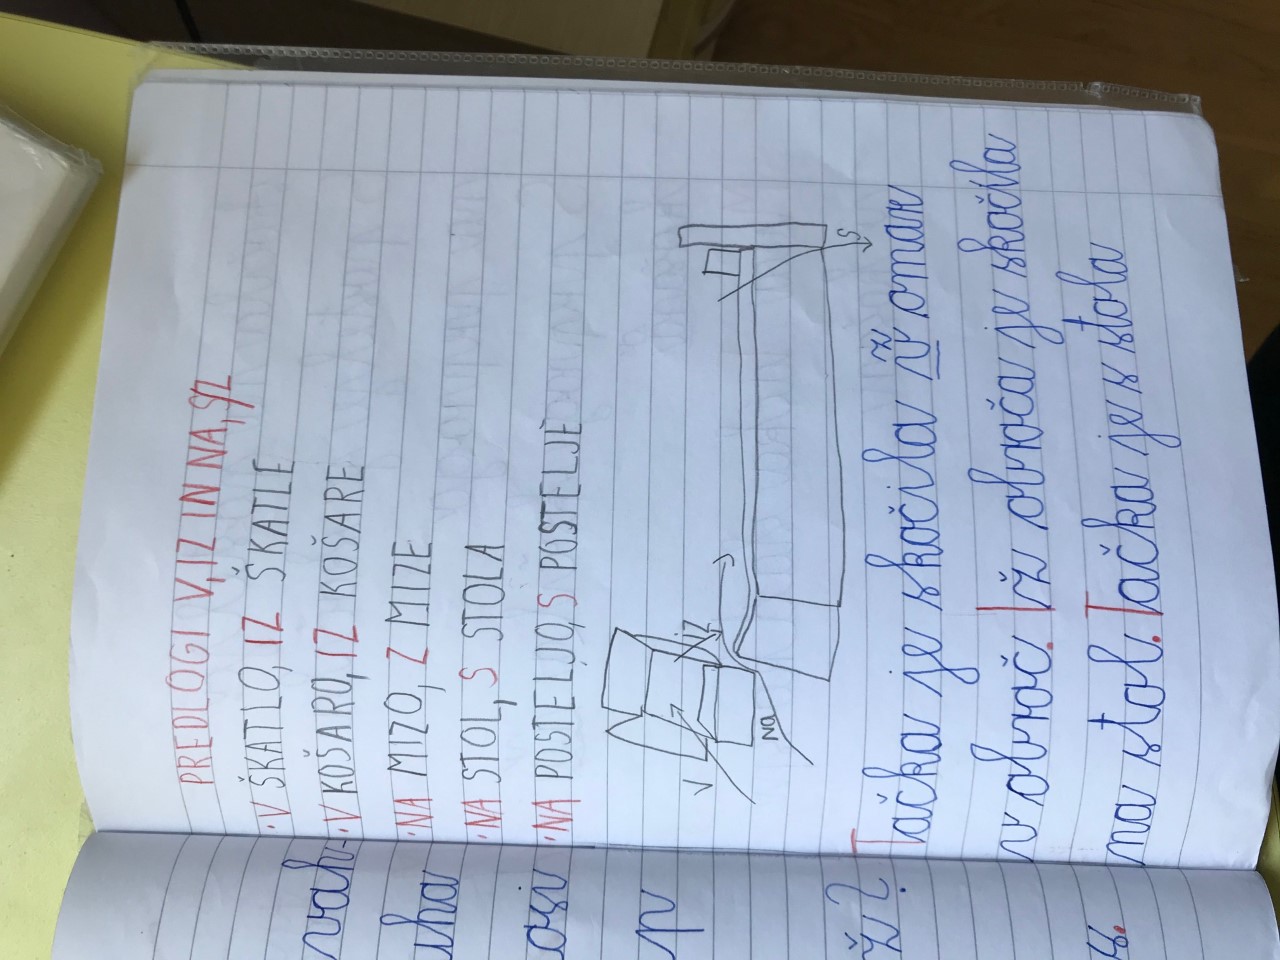 PREDLOGI V, IZ IN NA, S/Z
• V ŠKATLO, IZ ŠKATLE
• V KOŠARO, IZ KOŠARE
• NA MIZO, Z MIZE
• NA STOL, S STOLA
• NA POSTELJO, S POSTELJE
V
IZ
NA
S
Tačka je skočila v omar
ž
v obroč. Iž obroča je skočila
na stol. Tačka je s stola
vah-
uha
osi
p
ž?